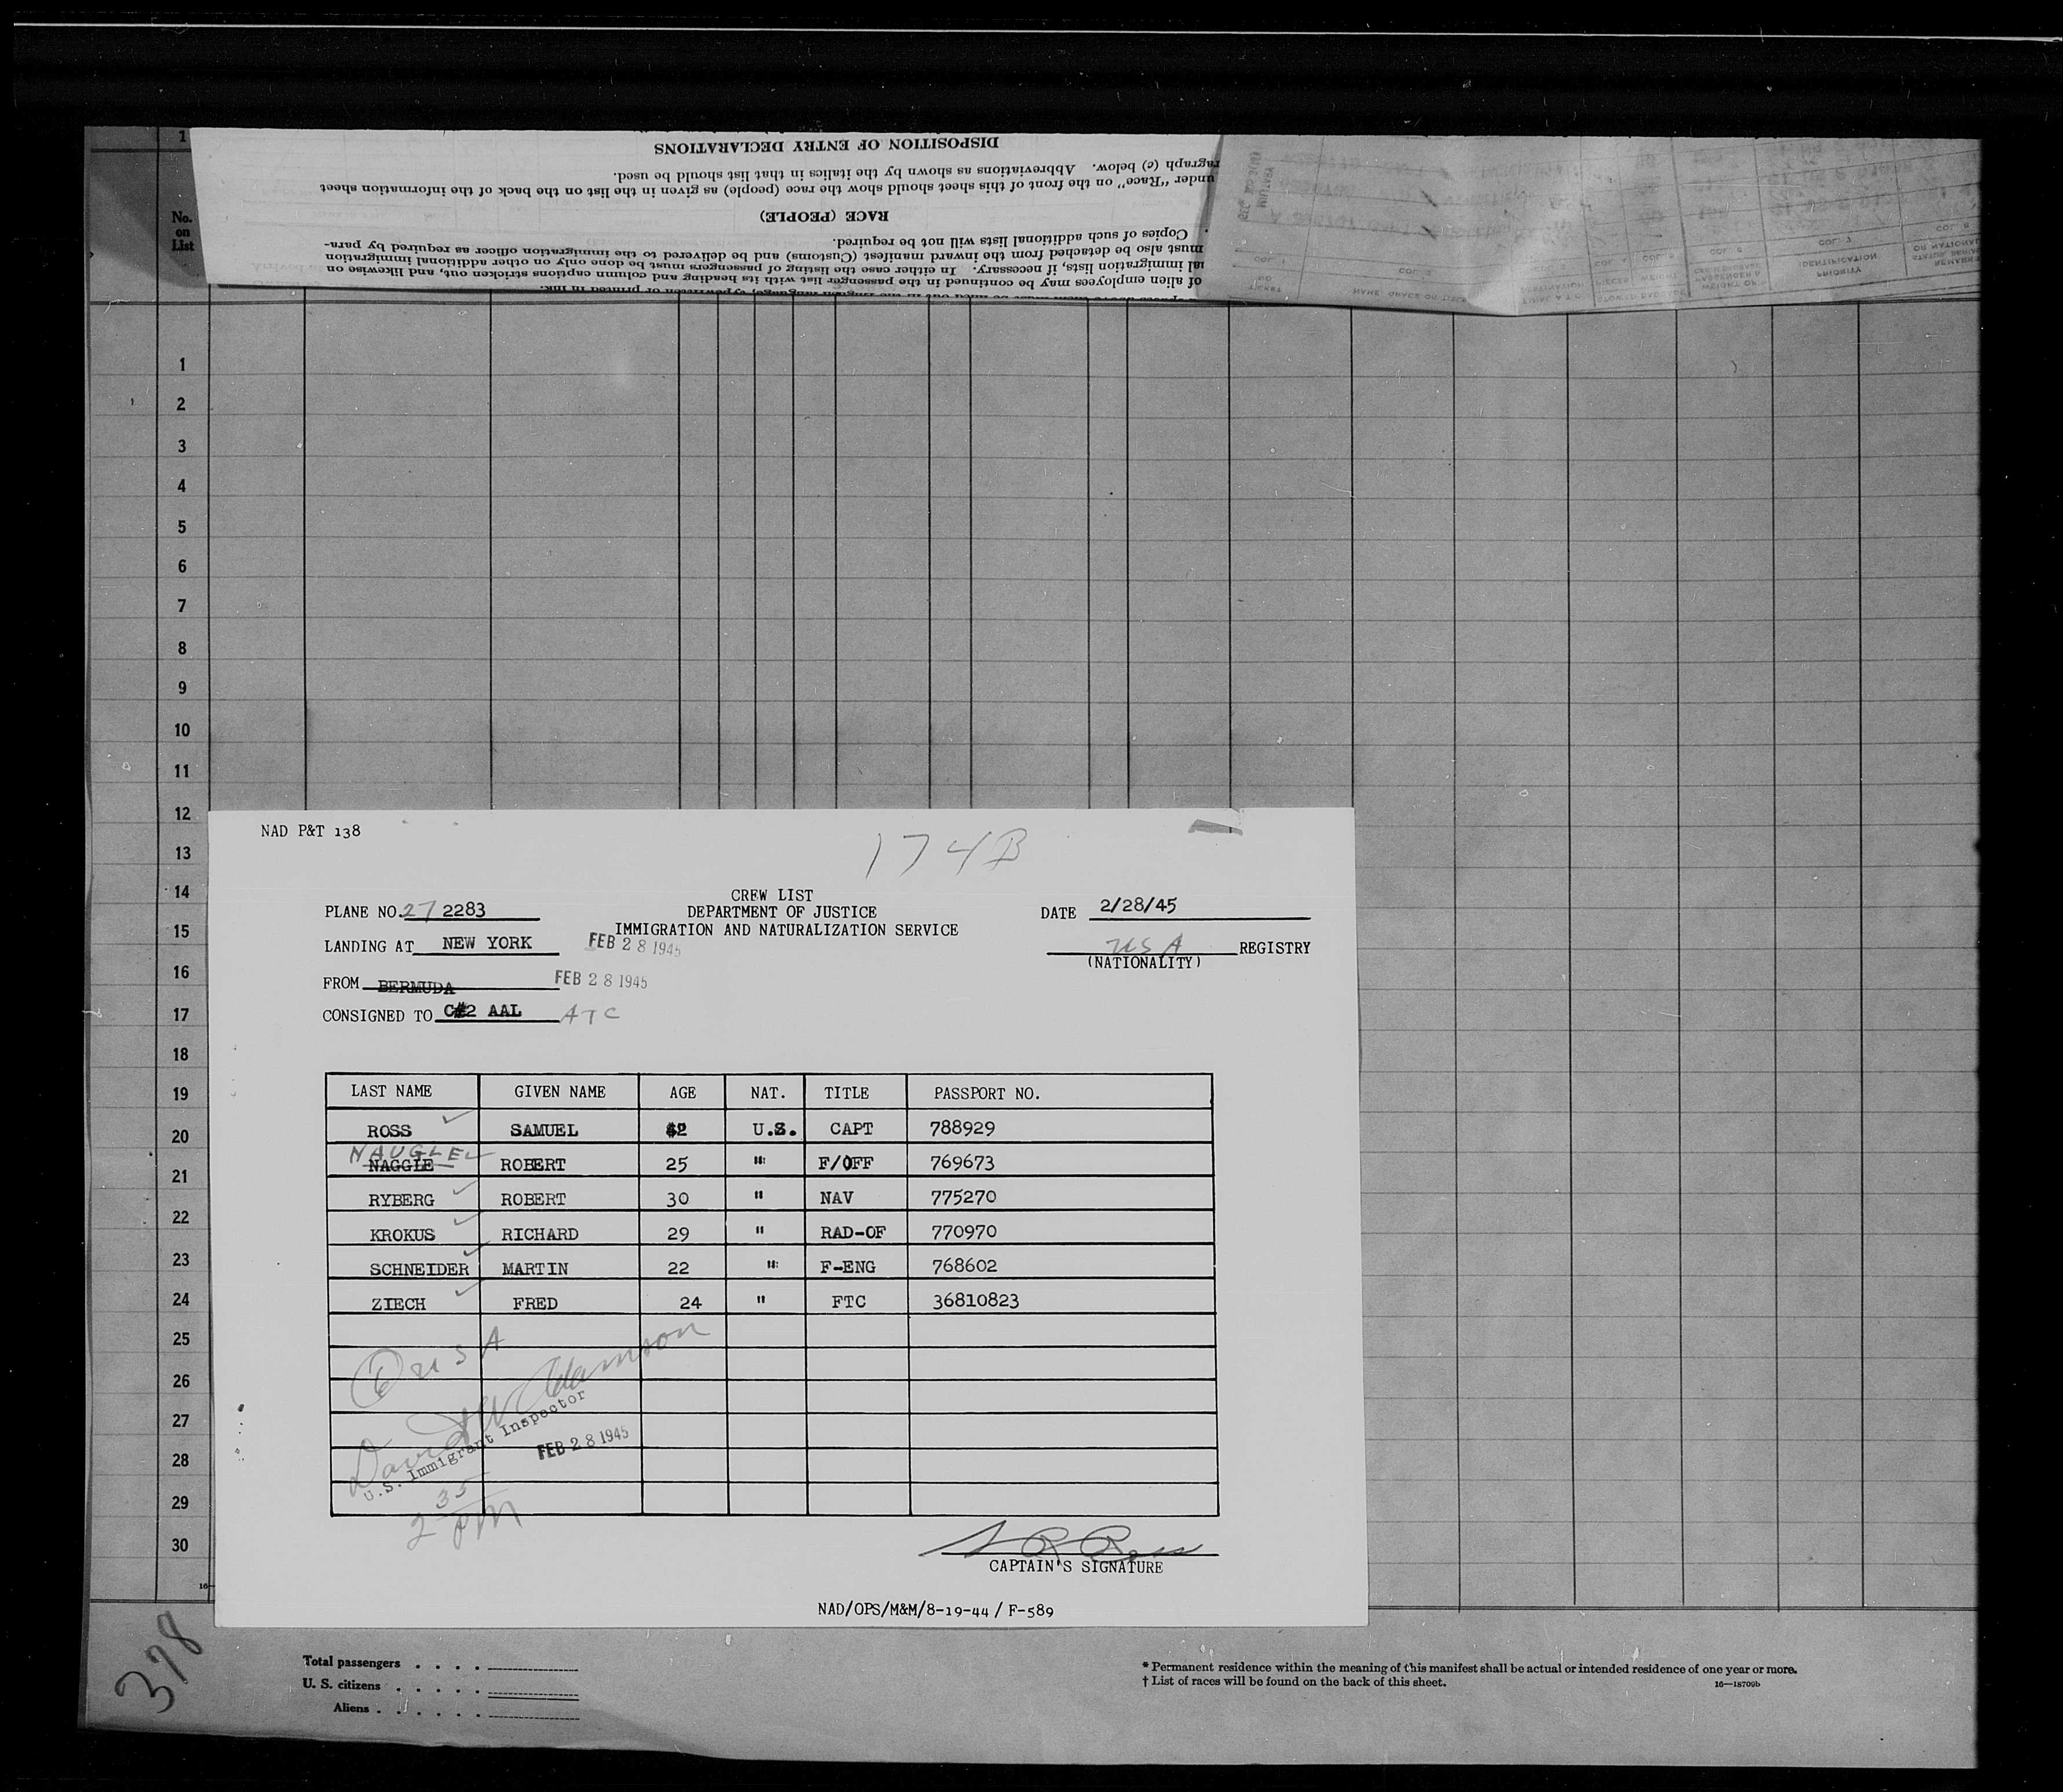 1
DISPOSITION OF ENTRY DECLARATIONS
ragraph (c) below. Abbreviations as shown by the italics in that list should be used.
under "Race" on the front of this sheet should show the race (people) as given in the list on the back of the information sheet
RACE (PEOPLE)
Copies of such additional lists will not be required.
must also be detached from the inward manifest (Customs) and be delivered to the immigration officer as required by para-
ial immigration lists, if necessary. In either case the listing of passengers must be done only on other additional immigration
of alien employees may be continued in the passenger list with its heading and column captions stricken out, and likewise on
No.
on
List
MILITARY
COL. 1
COL. 5
COL. 7
COL. 8
TICKET
NO
IDENTIFICATION
PRIORITY
1
2
3
4
5
6
7
8
9
10
11
12
13
14
15
16
17
18
19
20
21
22
23
24
25
26
27
28
29
30
NAD P&T 138
174B
CREW LIST
DEPARTMENT OF JUSTICE
IMMIGRATION AND NATURALIZATION SERVICE
PLANE NO. 27 2283
DATE 2/28/45
LANDING AT NEW YORK FEB 28 1945
USA REGISTRY
(NATIONALITY)
FROM BERMUDA FEB 28 1945
CONSIGNED TO C#2 AAL ATC
LAST NAME GIVEN NAME AGE NAT. TITLE PASSPORT NO.
ROSS SAMUEL 42 U.S. CAPT 788929
NAUGLE
NAGGLE ROBERT 25 " F/OFF 769673
RYBERG ROBERT 30 " NAV 775270
KROKUS RICHARD 29 " RAD-OF 770970
SCHNEIDER MARTIN 22 " F-ENG 768602
ZIECH FRED 24 " FTC 36810823
6 USA
David W Adamson
U.S. Immigrant Inspector
FEB 28 1945
2 35 PM
S R Ross
CAPTAIN'S SIGNATURE
NAD/OPS/M&M/8-19-44 / F-589
16
378
Total passengers . . . .
U. S. citizens . . . . .
Aliens . . . . . .
* Permanent residence within the meaning of this manifest shall be actual or intended residence of one year or more.
† List of races will be found on the back of this sheet.
16—18709b